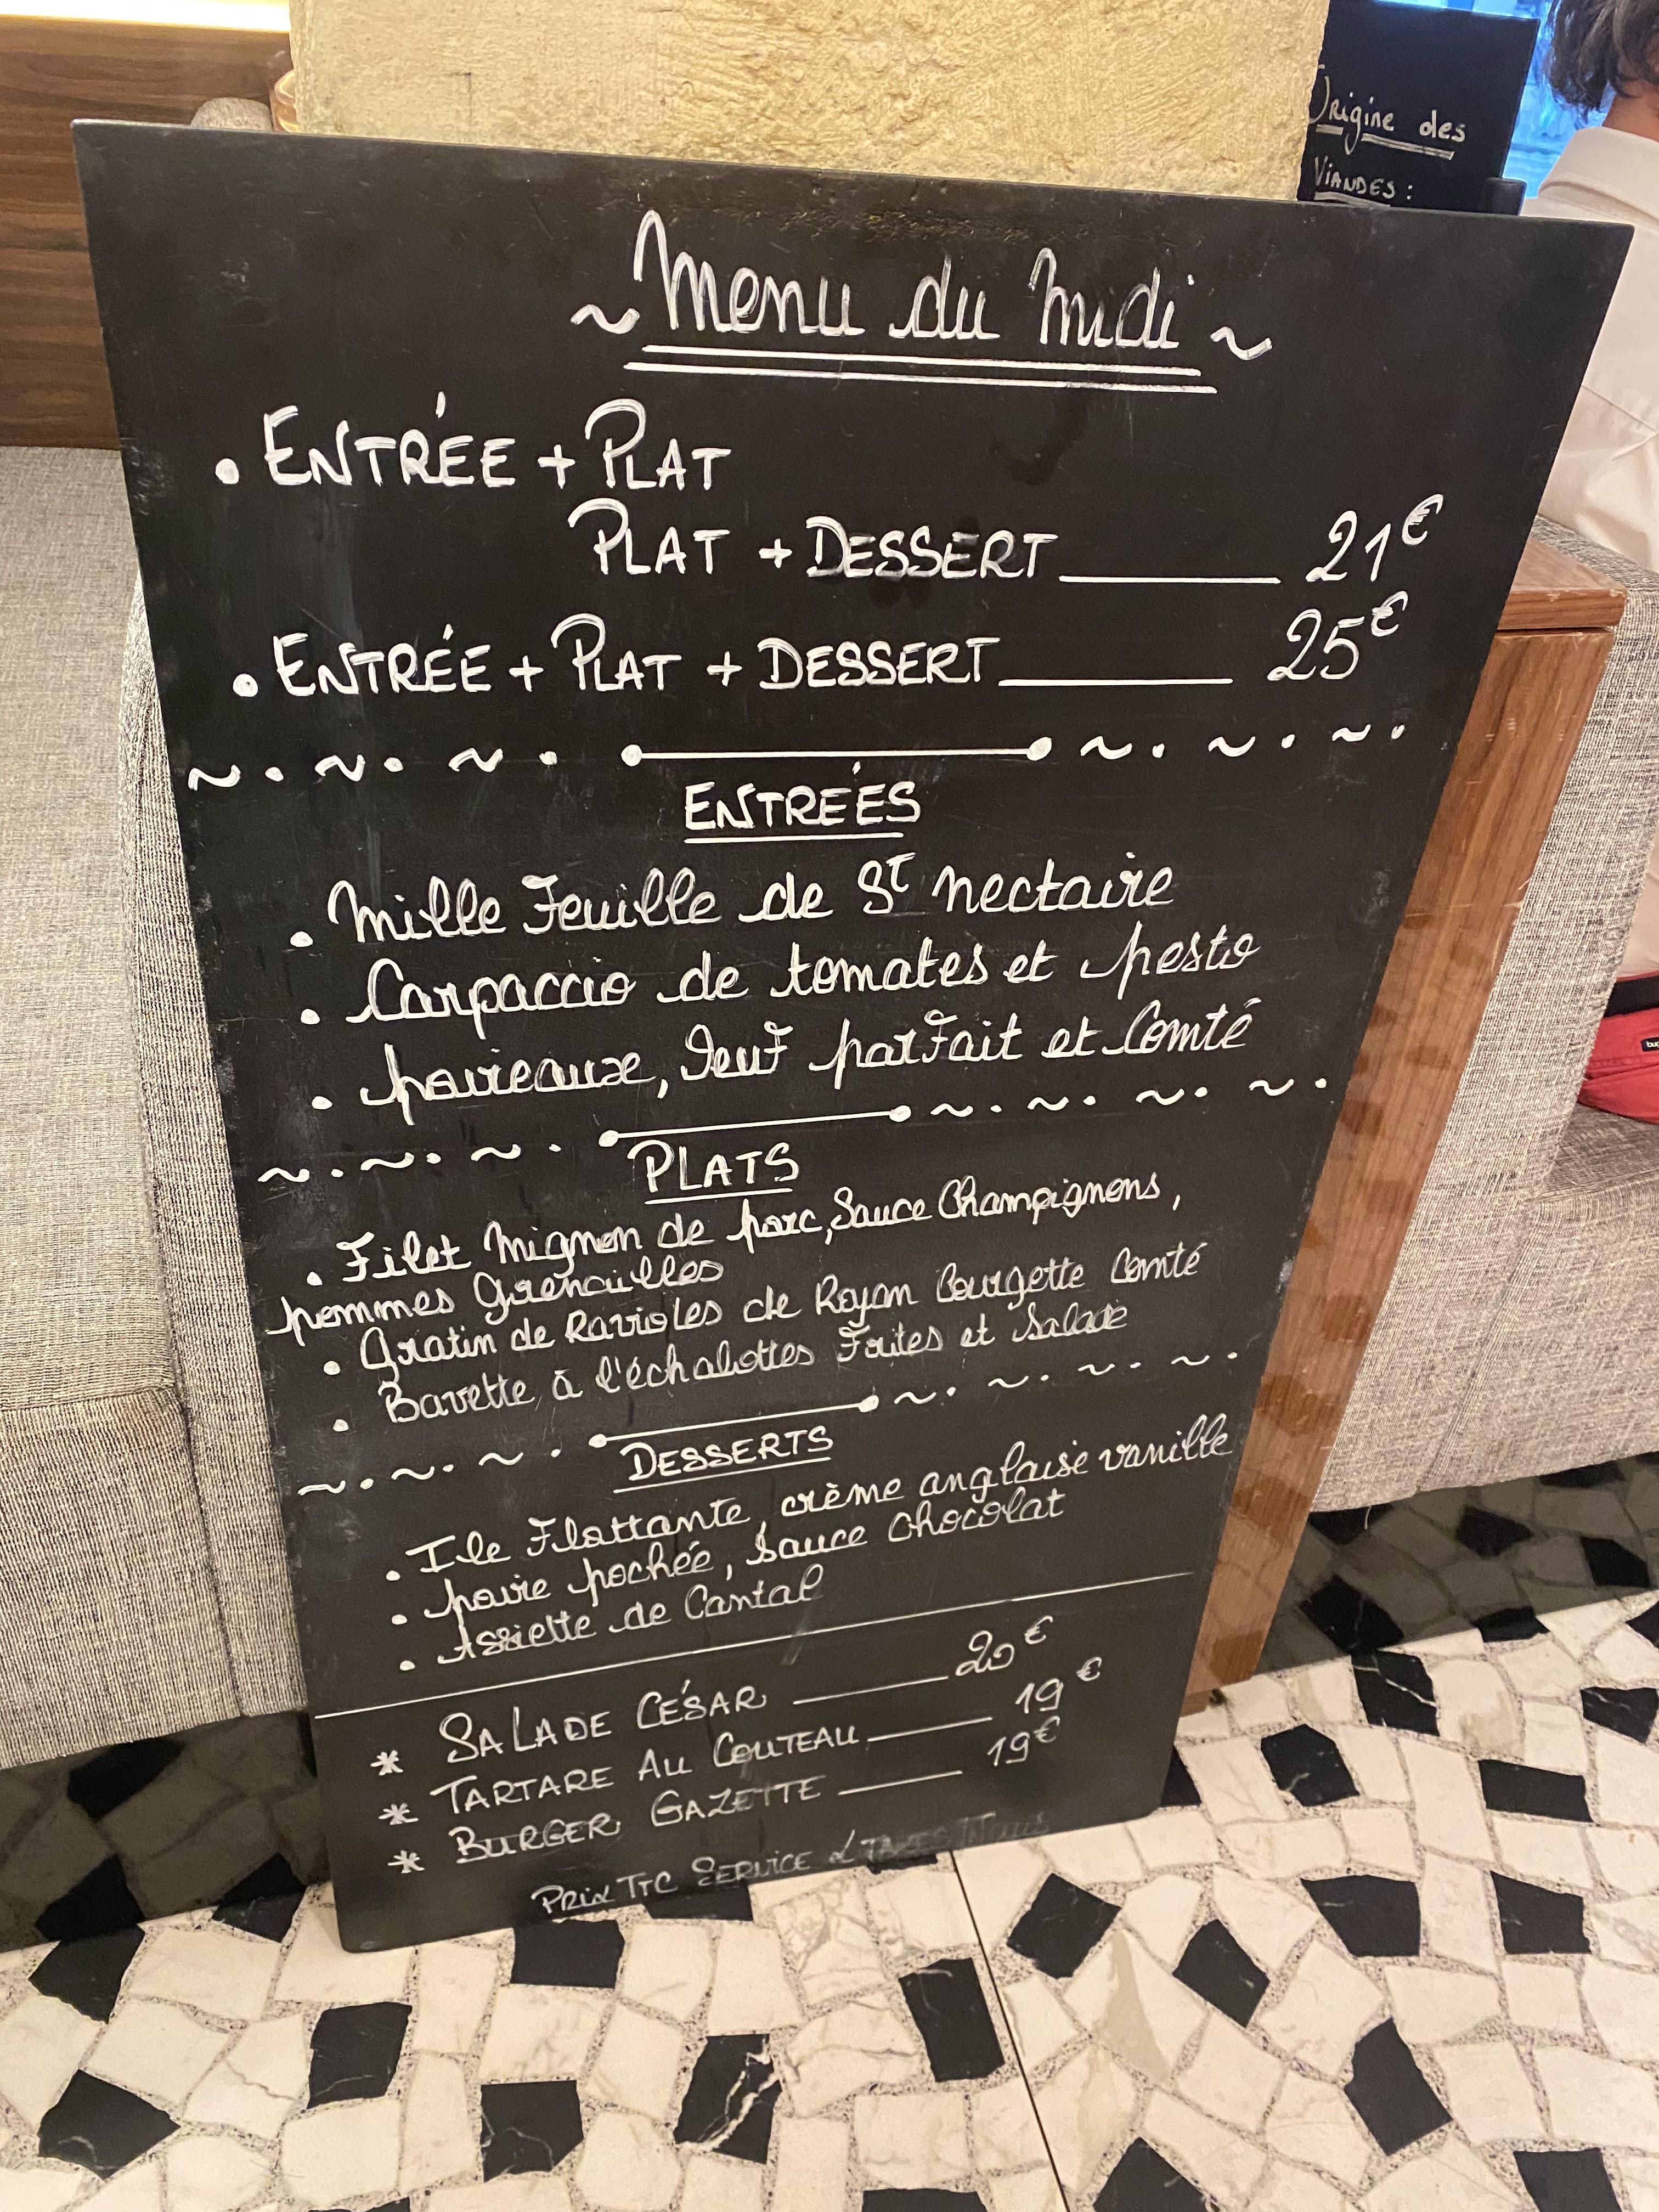 Origine des
VIANDES :
~ Menu du midi ~
• ENTRÉE + PLAT
PLAT + DESSERT 21€
• ENTRÉE + PLAT + DESSERT 25€
ENTREÉS
• Mille Feuille de St nectaire
• Carpaccio de tomates et pesto
• poireaux, Oeuf parfait et Comté
PLATS
• Filet Mignon de porc, Sauce Champignons,
pommes Grenailles
• Gratin de Ravioles de Royan Courgette Comté
• Bavette à l'échalottes Frites et Salade
DESSERTS
• Ile Flottante, crème anglaise vanille
• poire pochée, sauce chocolat
• Assiette de Cantal
* SALADE CÉSAR 20€
* TARTARE AU COUTEAU 19€
* BURGER GAZETTE 19€
PRIX TTC SERVICE & TAXES